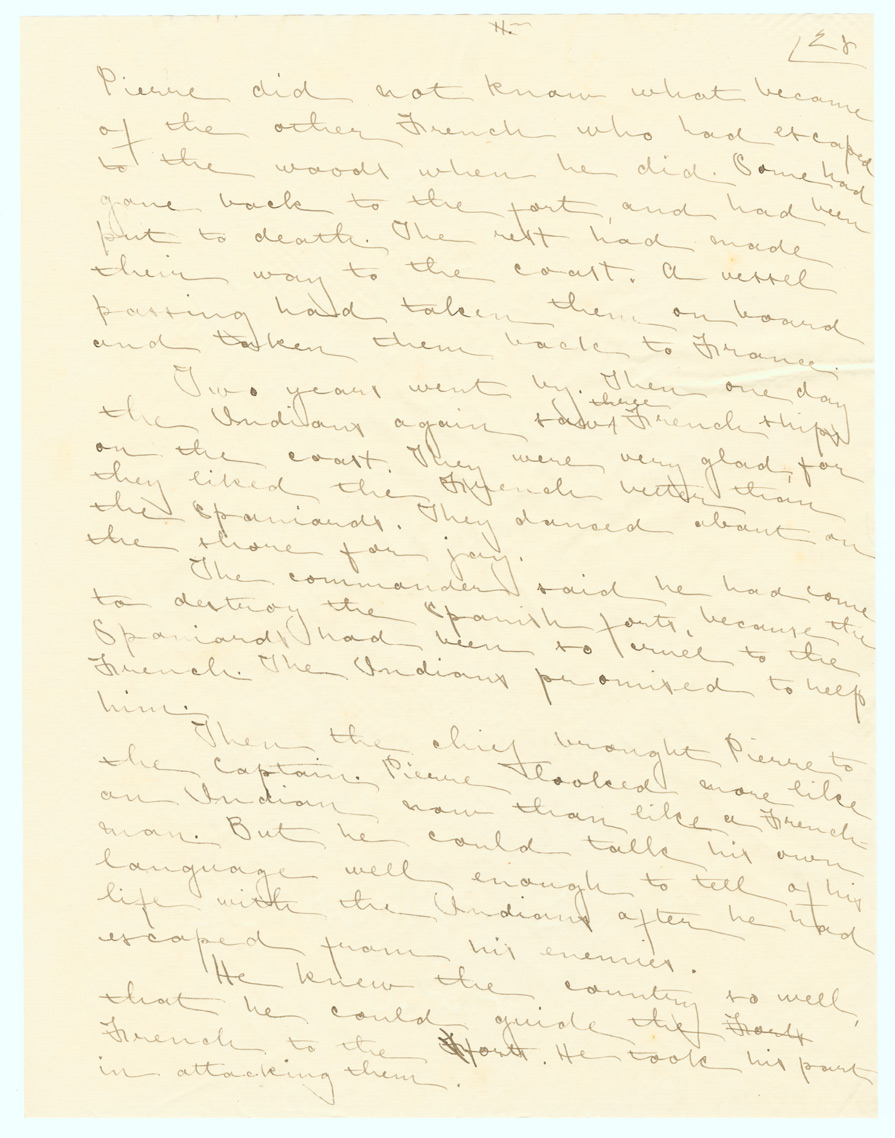 11.
28
Pierre did not know what became
of the other French who had escaped
to the woods when he did. Some had
gone back to the fort, and had been
put to death. The rest had made
their way to the coast. A vessel
passing had taken them on board
and taken them back to France.
Two years went by. Then one day
the Indians again saw three French ships
on the coast. They were very glad, for
they liked the French better than
the Spaniards. They danced about on
the shore for joy.
The commander said he had come
to destroy the Spanish forts, because the
Spaniards had been so cruel to the
French. The Indians promised to help
him.
Then the chief brought Pierre to
the Captain. Pierre looked more like
an Indian now than like a French-
man. But he could talk his own
language well enough to tell of his
life with the Indians after he had
escaped from his enemies.
He knew the country so well,
that he could guide the Forts
French to the forts. He took his part
in attacking them.